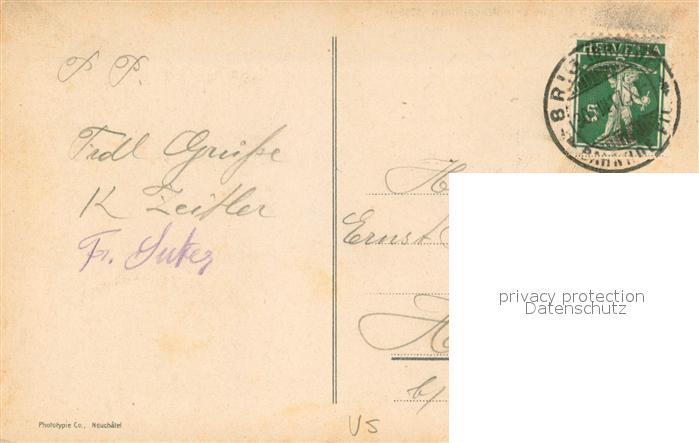 P P.
Frdl Grüße
K Zeitler
Fr. Suter
HELVETIA
5
BRIG
H
Ernst
privacy protection
Datenschutz
b/
Phototypie Co., Neuchâtel
VS